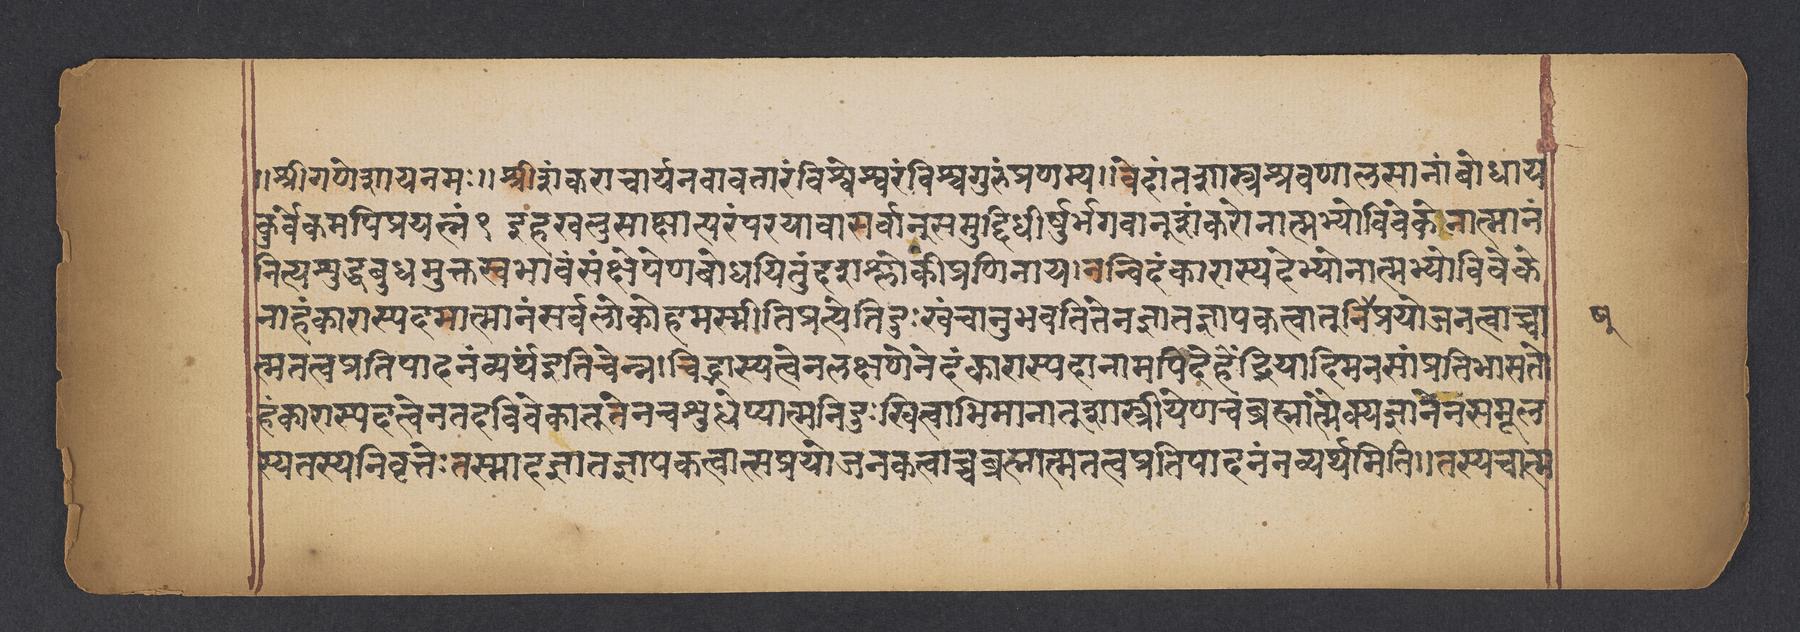 ॥श्रीगणेशायनमः॥श्रीशंकराचार्यनवावतारंविश्वेश्वरंविश्वगुरुंप्रणम्य॥वेदांतशास्त्रश्रवणालसानांबोधाय
कुर्वेकमपिप्रयत्नं१इहखलुसाक्षात्परंपरयावासर्वानुसमुद्दिधीर्षुर्भगवानुशंकरोनात्मभ्योविवेकेनात्मानं
नित्यशुद्धबुधमुक्तस्वभावंसंक्षेपेणबोधयितुंदशश्लोकीप्रणिनाय।नन्विदंकारास्पदेभ्योनात्मभ्योविवेके
नाहंकारास्पदमात्मानंसर्वलोकोहमस्मीतिप्रत्येतिदुःखंचानुभवतितेनज्ञातज्ञापकत्वातुनिप्रयोजनत्वाच्चा
त्मतत्वप्रतिपादनंव्यर्थंइतिचेन्न।चिद्भास्यत्वेनलक्षणेनेदंकारास्पदानामपिदेहेंद्रियादिमनसांप्रतिभासतो
हंकारास्पदत्वेनतदविवेकातुतेनचशुधेप्यात्मनिदुःखित्वाभिमानातुशास्त्रीयेणचब्रह्मात्मैक्यज्ञानेनसमूल
स्यतस्यनिवृत्तेःतस्मादज्ञातज्ञापकत्वात्सप्रयोजनकत्वाच्चब्रह्मात्मतत्वप्रतिपादनंनव्यर्थमिति॥तस्यचात्म